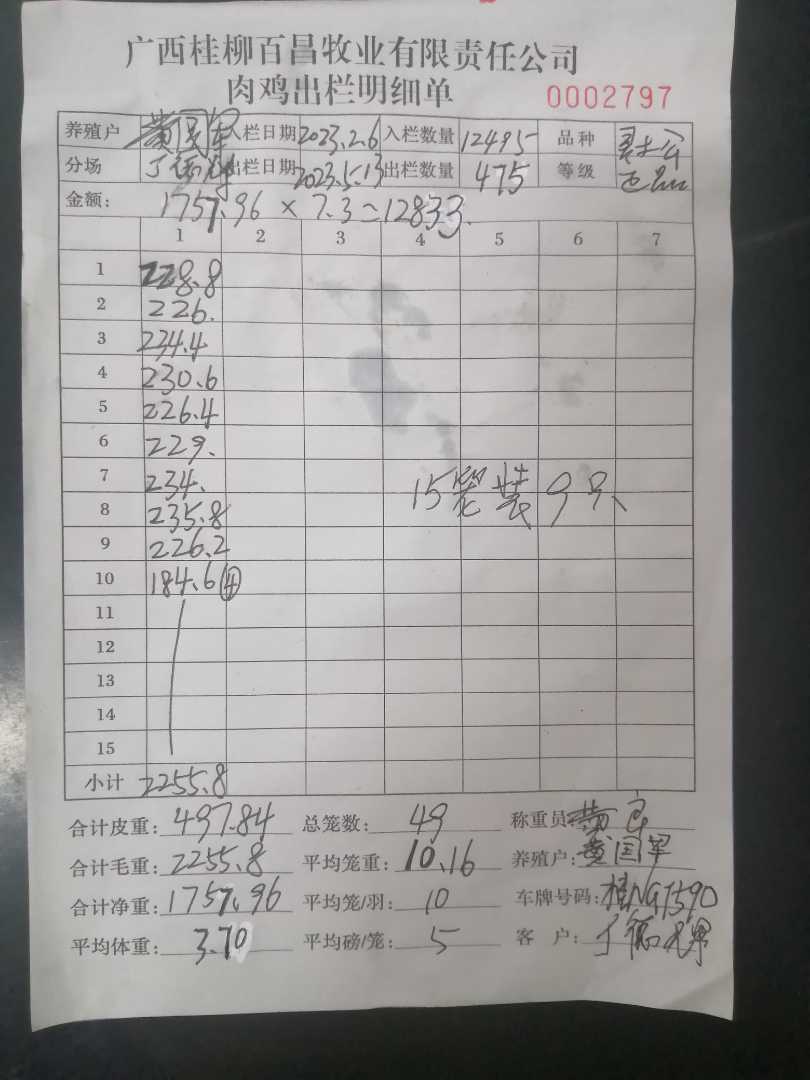 广西桂柳百昌牧业有限责任公司
肉鸡出栏明细单 0002797
养殖户 黄国军 入栏日期 2023.2.6 入栏数量 12495 品种
分场 丁德辉 出栏日期 2023.5.13 出栏数量 475 等级
金额: 1757.96 × 7.3 = 12833.
1 2 3 4 5 6 7
1 228.8
2 226.
3 234.4
4 230.6
5 226.4
6 229.
7 234. 15笼装9只
8 235.8
9 226.2
10 184.6 ④
11
12
13
14
15
小计 2255.8
合计皮重: 497.84 总笼数: 49 称重员:
合计毛重: 2255.8 平均笼重: 10.16 养殖户: 黄国军
合计净重: 1757.96 平均笼/羽: 10 车牌号码: 桂NG1590
平均体重: 3.70 平均磅/笼: 5 客 户: 丁德辉